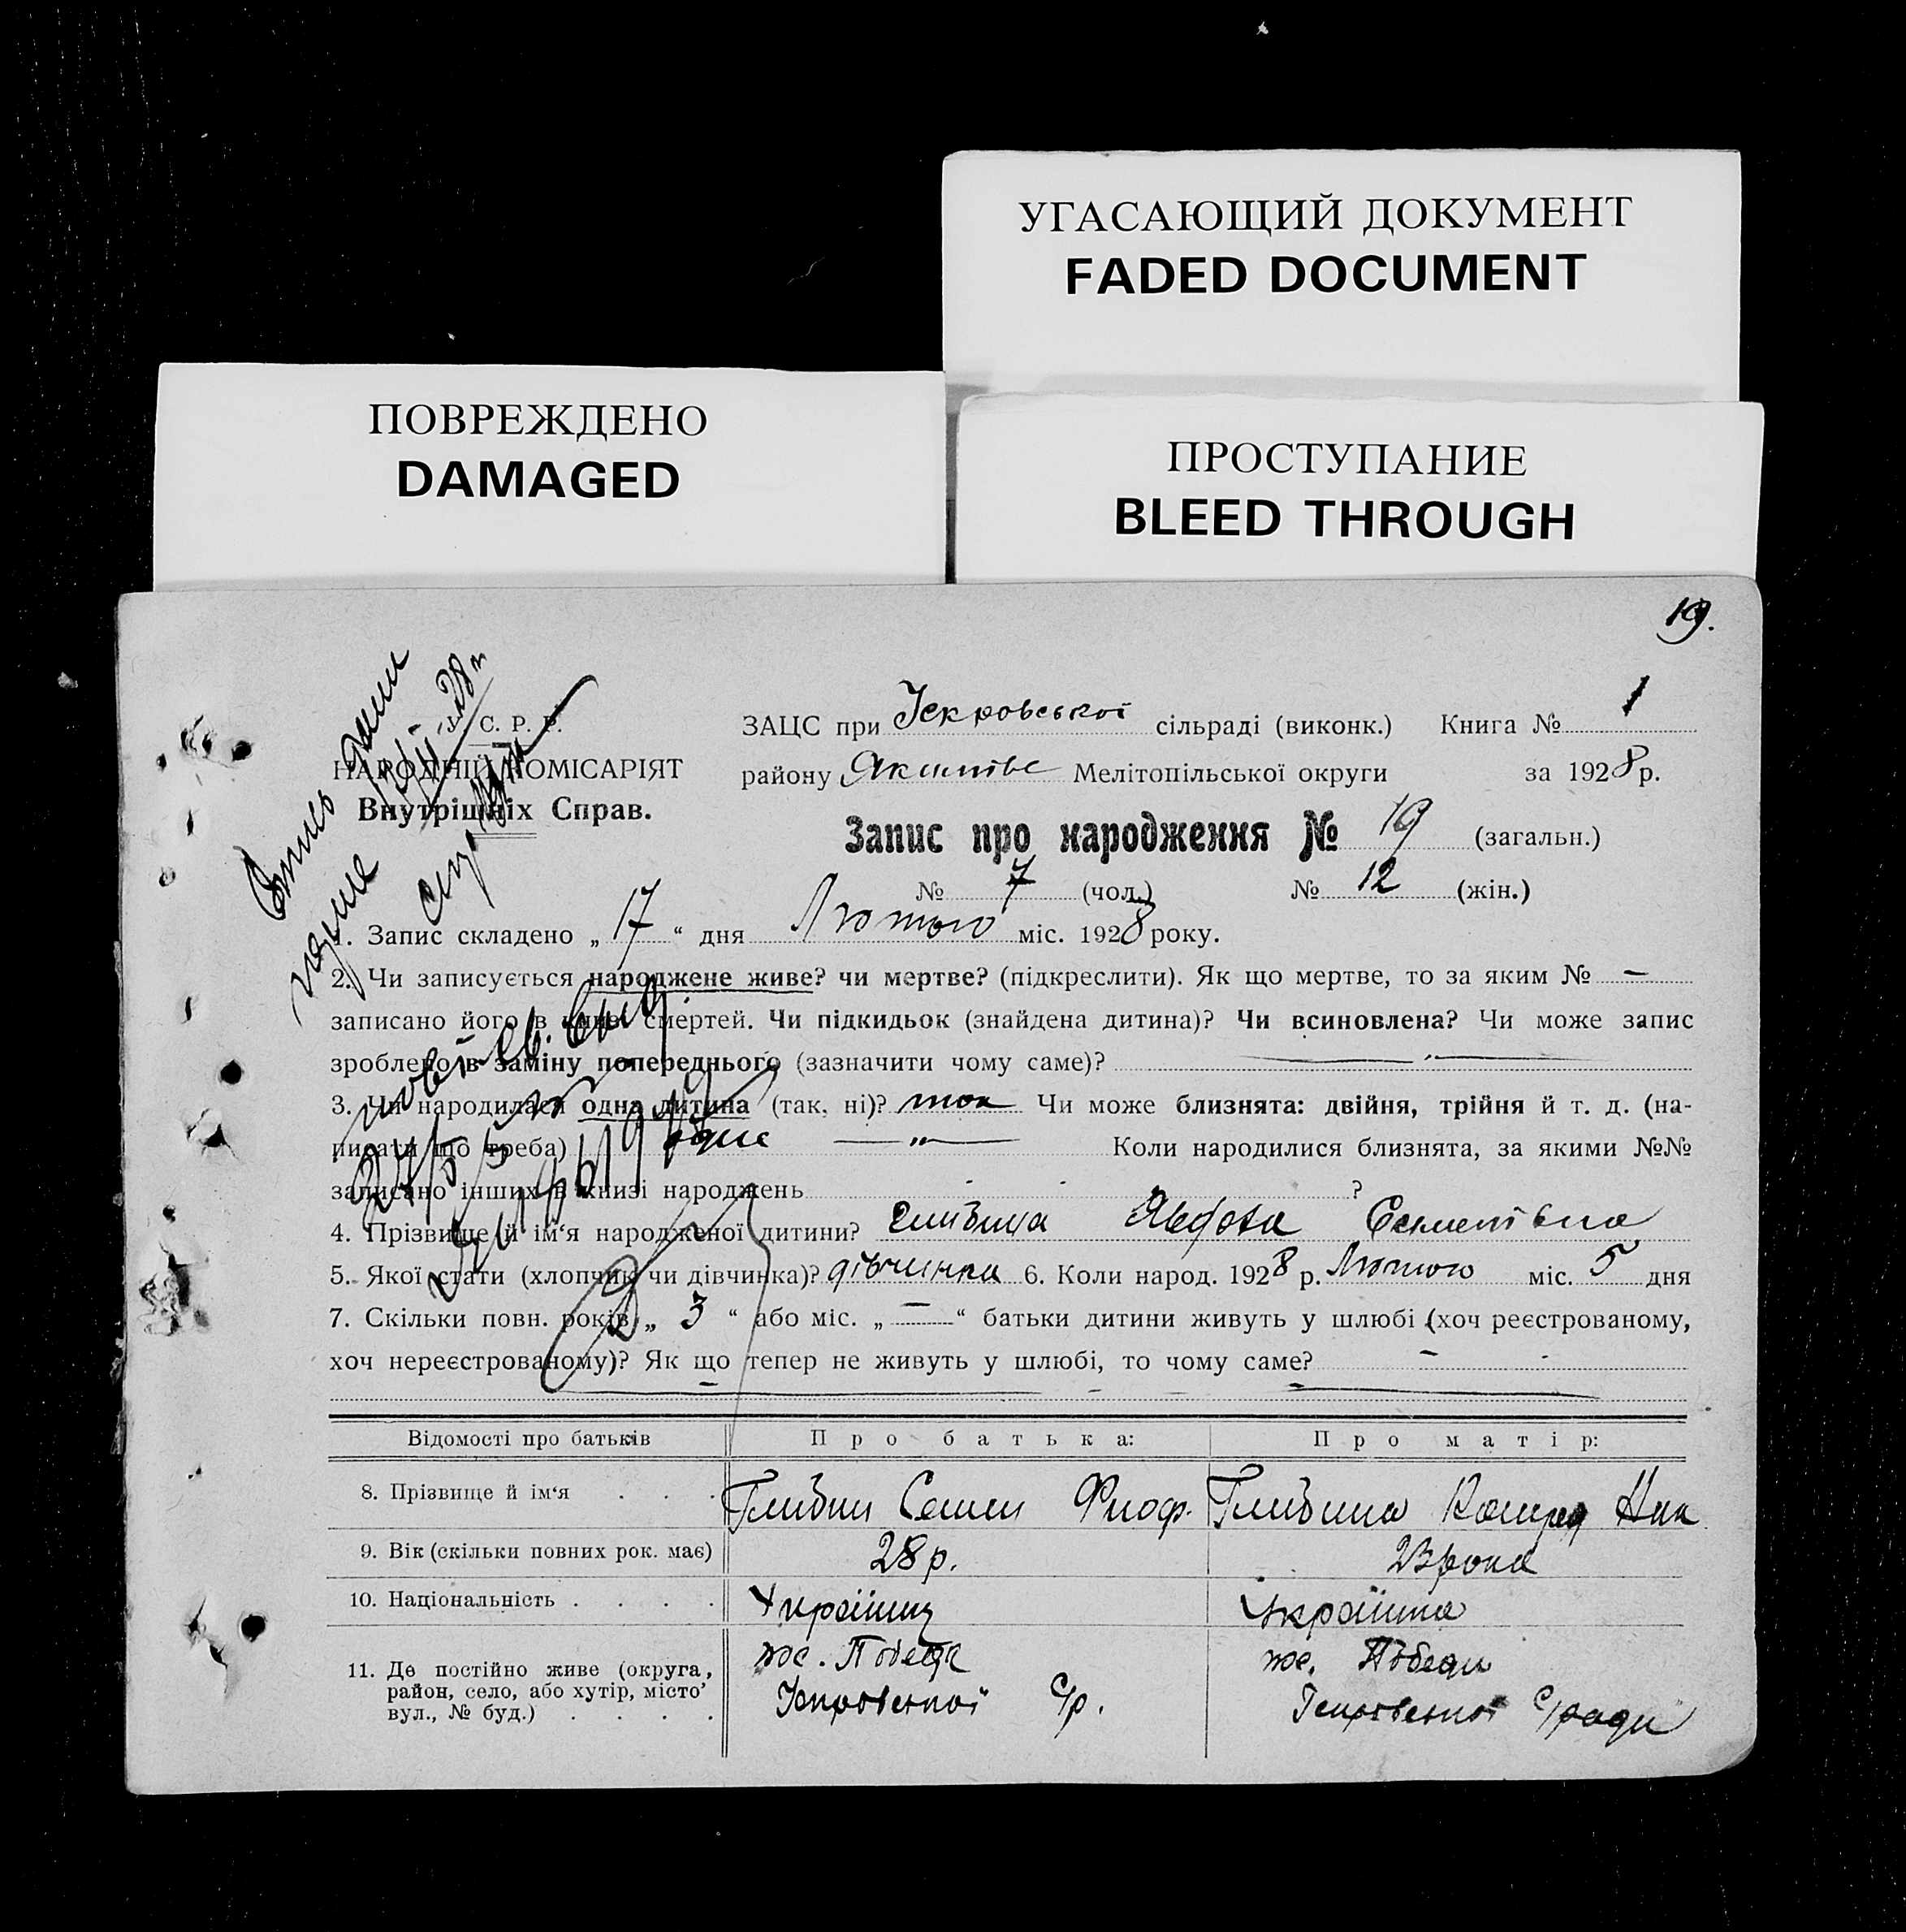 УГАСАЮЩИЙ ДОКУМЕНТ
FADED DOCUMENT
ПОВРЕЖДЕНО
DAMAGED
ПРОСТУПАНИЕ
BLEED THROUGH
19.
С. Р. Р.
НАРОДНІЙ КОМІСАРІЯТ
Внутрішніх Справ.
ЗАЦС при Іскровської сільраді (виконк.) Книга № 1
району Якимівс Мелітопільської округи за 1928 р.
Запис про народження № 19 (загальн.)
№ 7 (чол.) № 12 (жін.)
1. Запис складено „ 17 “ дня Лютого міс. 1928 року.
2. Чи записується народжене живе? чи мертве? (підкреслити). Як що мертве, то за яким № —
записано його в книзі смертей. Чи підкидьок (знайдена дитина)? Чи всиновлена? Чи може запис
зроблено в заміну попереднього (зазначити чому саме)?
3. Чи народилася одна дитина (так, ні)? так Чи може близнята: двійня, трійня й т. д. (на-
писати що треба) одне — „ — Коли народилися близнята, за якими №№
записано інших в книзі народжень ?
4. Прізвище й ім‘я народженої дитини? Семенівна
5. Якої стати (хлопчик чи дівчинка)? дівчинка 6. Коли народ. 1928 р. Лютого міс. 5 дня
7. Скільки повн. років „ 3 “ або міс. „ — “ батьки дитини живуть у шлюбі (хоч реєстрованому,
хоч нереєстрованому)? Як що тепер не живуть у шлюбі, то чому саме?
Відомості про батьків Про батька: Про матір:
8. Прізвище й ім‘я . . . Семен
9. Вік (скільки повних рок. має) 28 р. 23 рока
10. Національність . . . . Українец Українка
11. Де постійно живе (округа,
район, село, або хутір, місто
вул., № буд.) . . . .
х. Победа
Іскровської с/р.
х. Победи
Іскровської с/ради